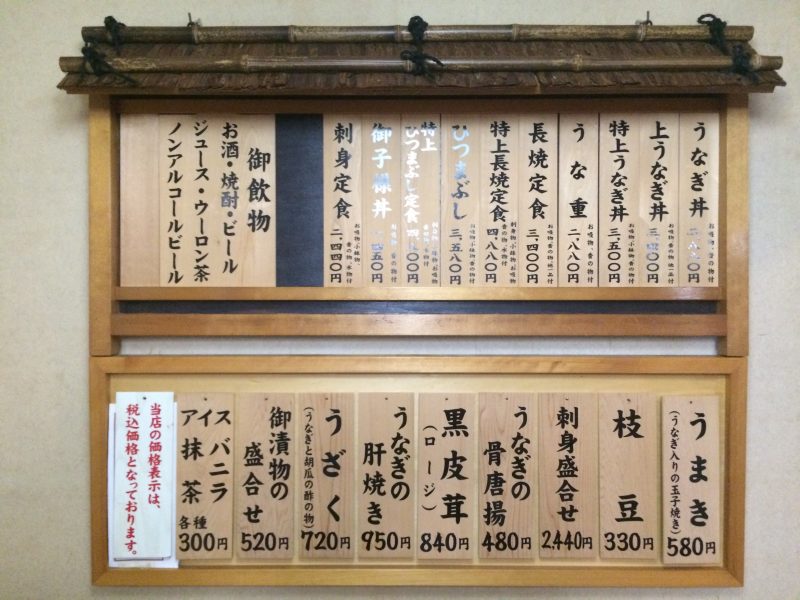 うなぎ丼 お吸物・香の物付 二、八八〇円
上うなぎ丼 お吸物・香の物付
特上うなぎ丼 お吸物・香の物付 三、五〇〇円
うな重 お吸物・香の物付 二、八八〇円
長焼定食 三、四〇〇円
特上長焼定食 四、八八〇円
ひつまぶし 三、五八〇円
特上ひつまぶし定食
御子様丼
刺身定食 お吸物・小鉢物・香の物・水物付 二、四四〇円
御飲物
お酒・焼酎・ビール
ジュース・ウーロン茶
ノンアルコールビール
うまき
(うなぎ入りの玉子焼き)
580円
枝豆
330円
刺身盛合せ
2,440円
うなぎの
骨唐揚
480円
黒皮茸
(ロージ)
840円
うなぎの
肝焼き
950円
うざく
(うなぎと胡瓜の酢の物)
720円
御漬物の
盛合せ
520円
アイス バニラ
抹茶
各種
300円
当店の価格表示は、
税込価格となっております。